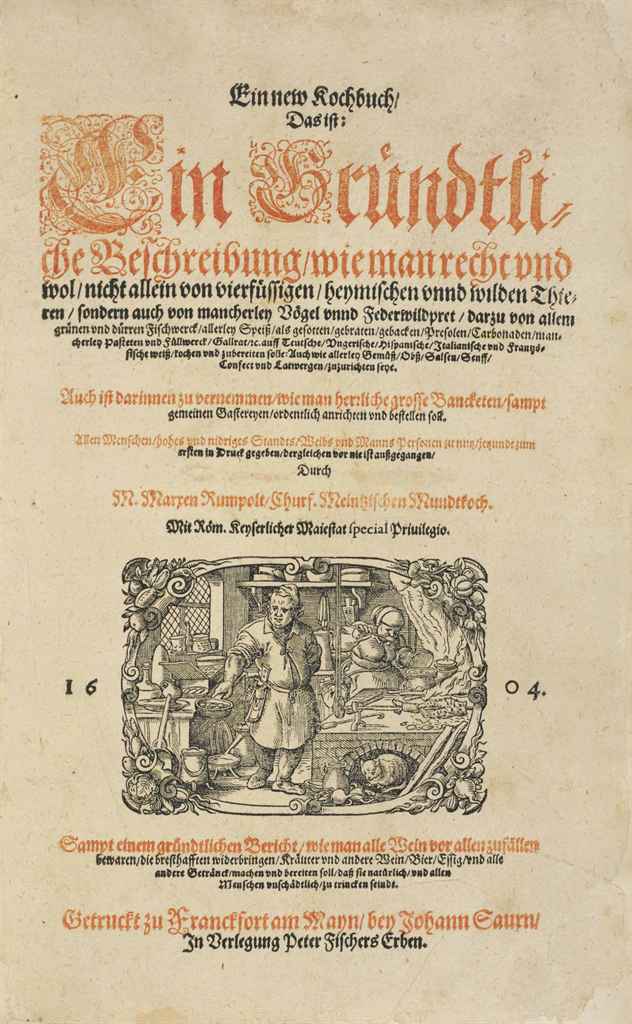 Ein new Kochbuch/
Das ist:
Ein Gründtli-
che Beschreibung/wie man recht vnd
wol/nicht allein von vierfüssigen/heymischen vnnd wilden Thie-
ren/sondern auch von mancherley Vögel vnnd Federwildpret/darzu von allem
grünen vnd dürren Fischwerck/allerley Speiß/als gesotten/gebraten/gebacken/Presolen/Carbonaden/man-
cherley Pasteten vnd Füllwerck/Gallrat/ꝛc. auff Teutsche/Vngerische/Hispanische/Jtalianische vnd Frantzö-
sische weiß/kochen vnd zubereiten solle: Auch wie allerley Gemüß/Obß/Salsen/Senff/
Confect vnd Latwergen/zuzurichten seye.
Auch ist darinnen zu vernemmen/wie man herrliche grosse Bancketen/sampt
gemeinen Gastereyen/ordentlich anrichten vnd bestellen soll.
Allen Menschen/hohes vnd nidriges Standts/Weibs vnd Manns Personen zu nutz/jetzundt zum
ersten in Druck gegeben/dergleichen vor nie ist außgegangen/
Durch
M. Marxen Rumpolt/Churf. Meintzischen Mundtkoch.
Mit Röm. Keyserlicher Maiestat special Priuilegio.
16 04.
Sampt einem gründtlichen Bericht/wie man alle Wein vor allen zufällen
bewaren/die bresthafften widerbringen/Kräuter vnd andere Wein/Bier/Essig/vnd alle
andere Getränck/machen vnd bereiten soll/daß sie natürlich/vnd allen
Menschen vnschädtlich/zu trincken seindt.
Getruckt zu Franckfort am Mayn/bey Johann Saurn/
Jn Verlegung Peter Fischers Erben.